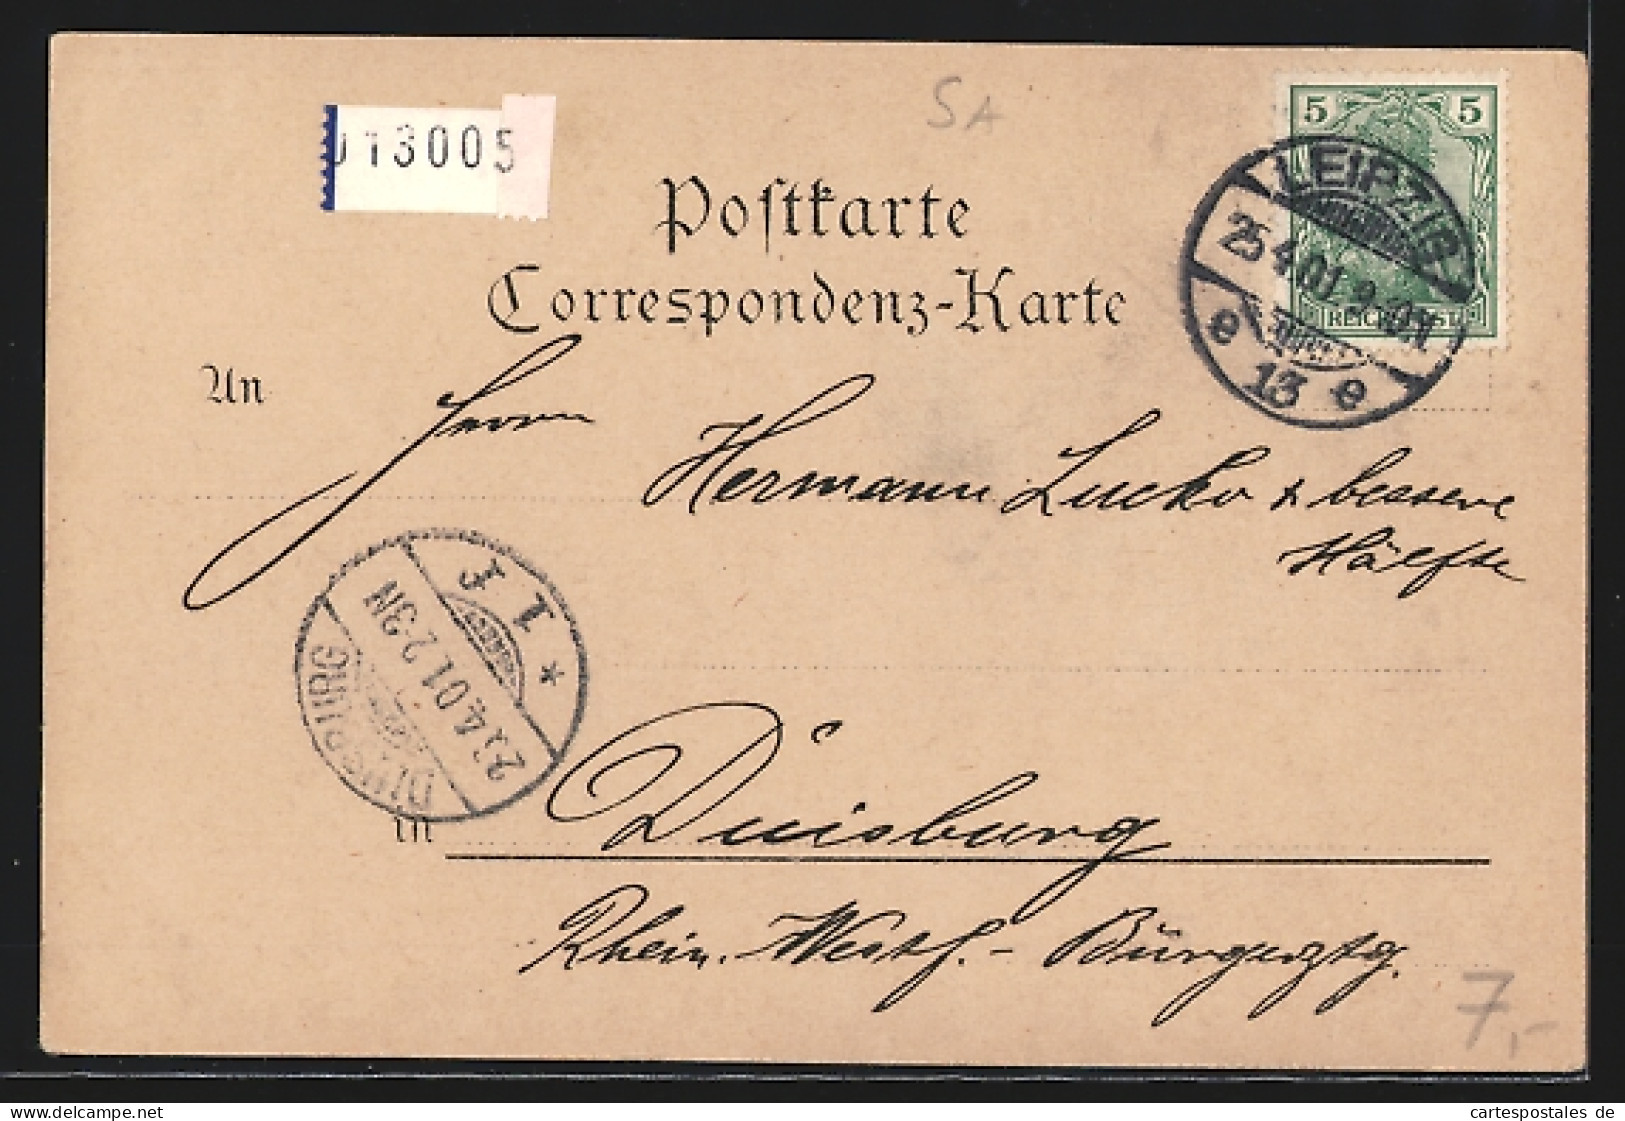 13005
SA
5 5
REICHSPOST
LEIPZIG
25 4.01.
e 13 e
Postkarte
Correspondenz-Karte
An
Herrn
Hermann Lucko & bessere
Hälfte
1 f
4.01. 2-3N
DUISBURG
in Duisburg
Rhein. Westf.- Bürgerztg.
7,-
delcampe.net
cartespostales de